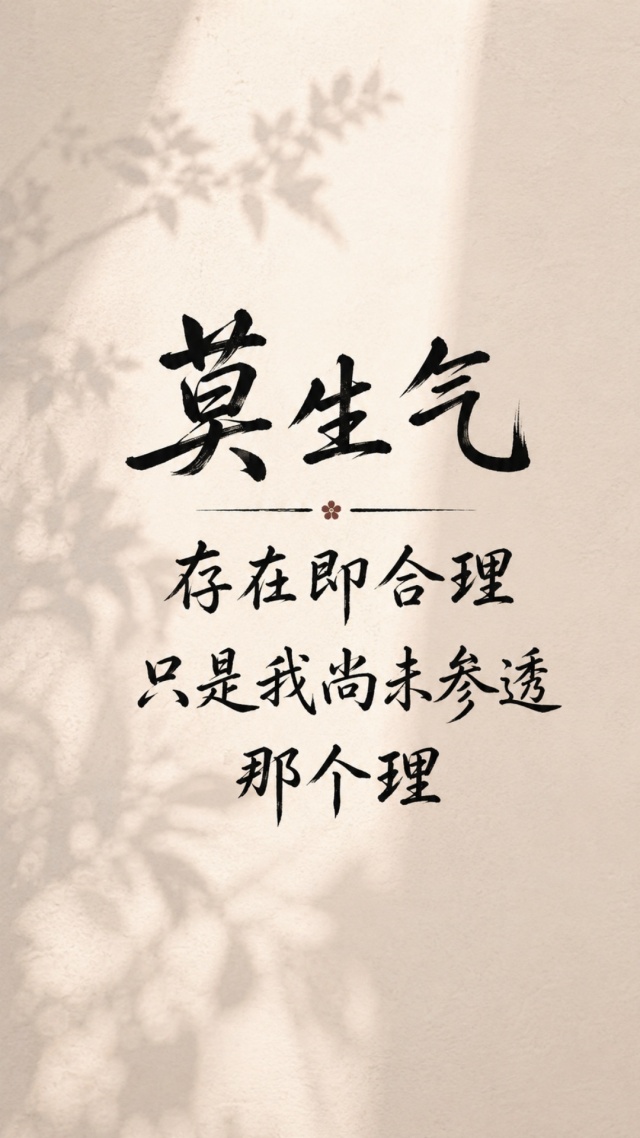 莫生气
存在即合理
只是我尚未参透
那个理